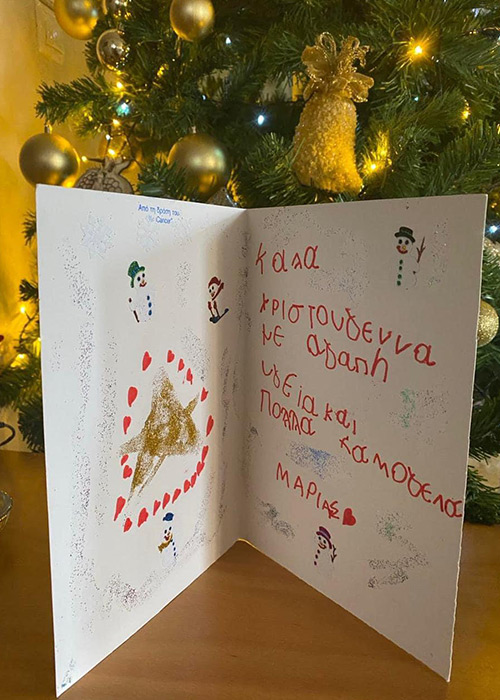 Από τη δράση του
Cancer"
Καλα
χριστουγεννα
με αγαπη
υγεια και
Πολλα χαμογελα
ΜΑΡΙΑ